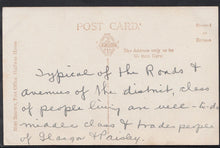 POST CARD.
Printed in Britain
The Address only to be written here
Typical of the Roads &
avenues of the district, class
of people living are well-to-do
middle class & trades people
of Glasgow & Paisley.